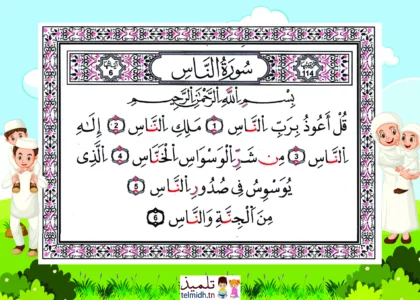 سُورَةُ النَّاسِ
114
6
بِسْمِ اللَّهِ الرَّحْمَٰنِ الرَّحِيمِ
قُلْ أَعُوذُ بِرَبِّ النَّاسِ 1 مَلِكِ النَّاسِ 2 إِلَٰهِ
النَّاسِ 3 مِن شَرِّ الْوَسْوَاسِ الْخَنَّاسِ 4 الَّذِي
يُوَسْوِسُ فِي صُدُورِ النَّاسِ 5
مِنَ الْجِنَّةِ وَالنَّاسِ 6
تلميذ
telmidh.tn